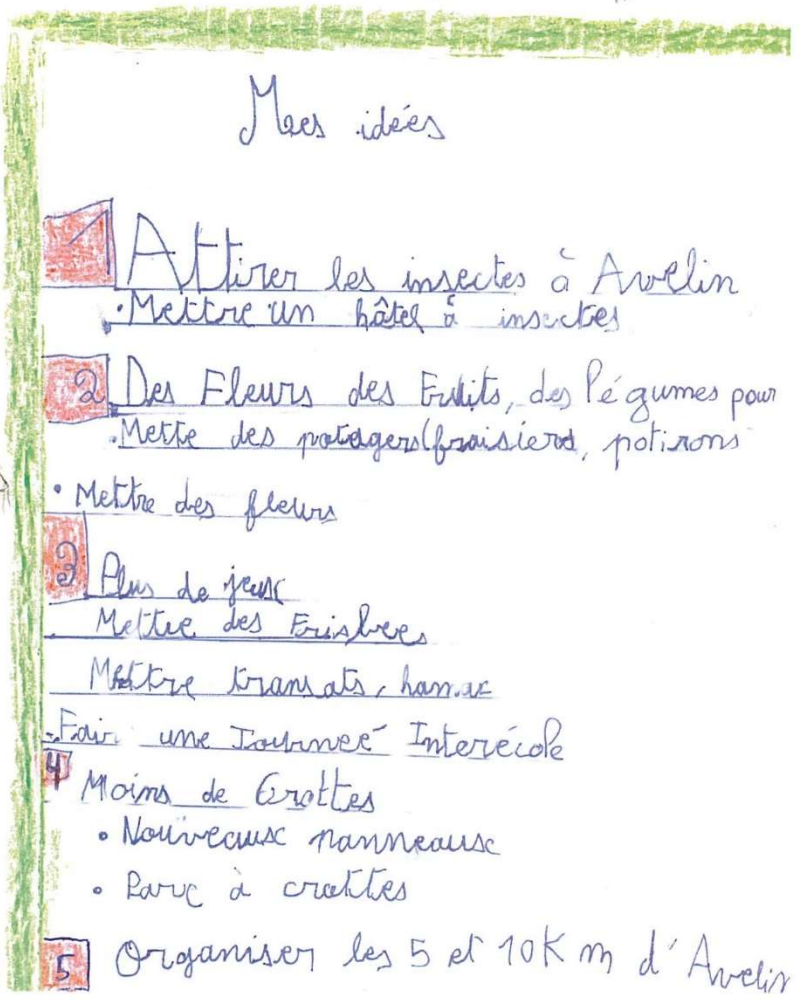 Mes idées
1 Attirer les insectes à Avelin
• Mettre un hôtel à insectes
2 Des Fleurs des Fruits, des légumes pour
• Mette des potagers (fraisiers, potirons
• Mettre des fleurs
3 Plus de jeux
Mettre des Frisbees
Mettre transats, hamac
- Fair une Journeé Interécole
4 Moins de Crottes
• Nouveaux panneaux
• Parc à crottes
5 Organiser les 5 et 10 Km d'Avelin